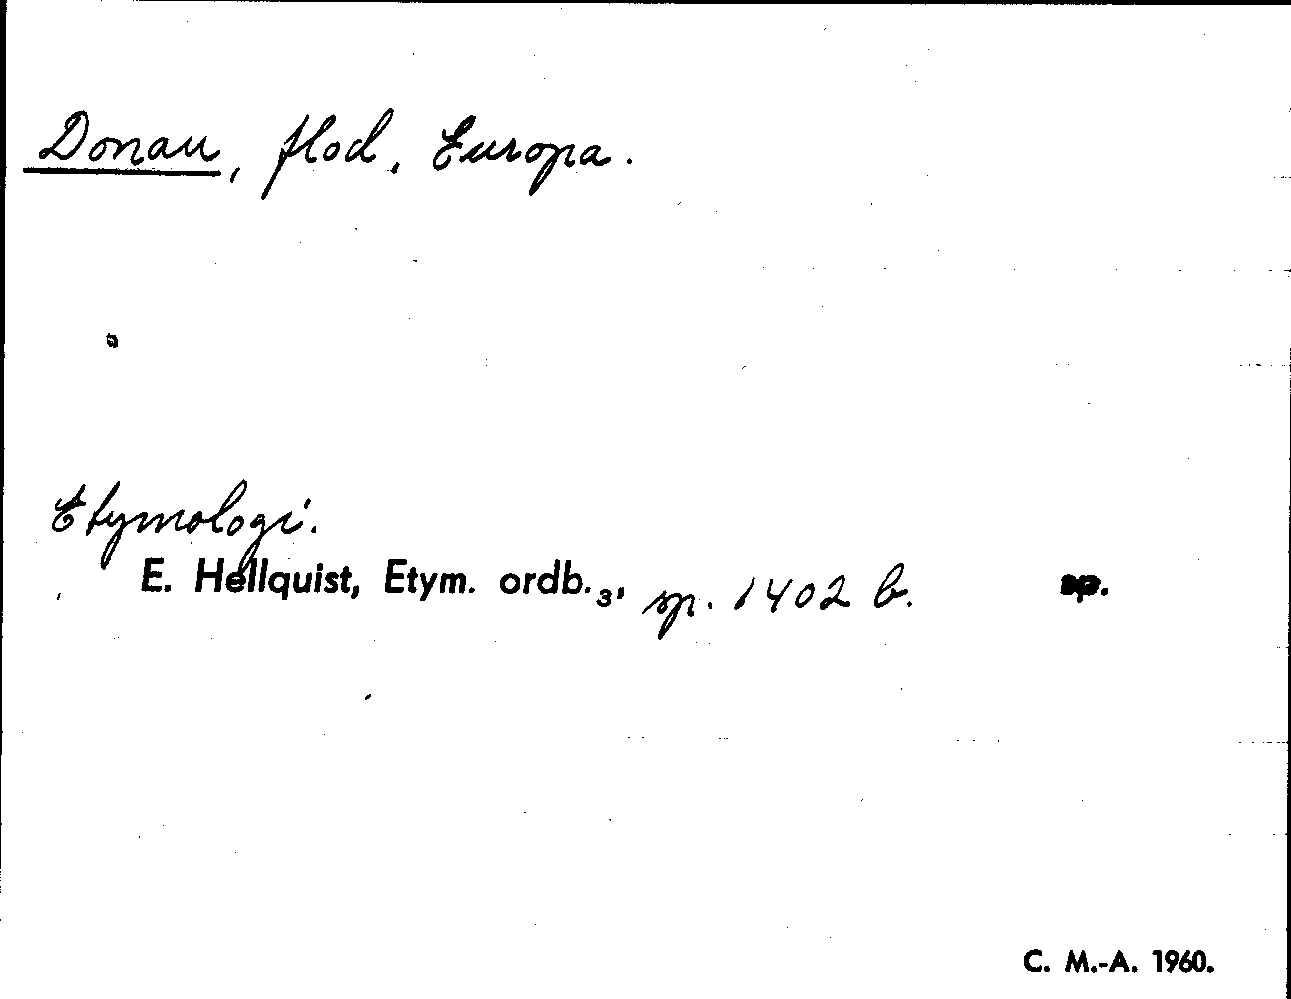 Donau, flod, Europa.
Etymologi.
E. Hellquist, Etym. ordb.₃, sp. 1402 b. sp.
C. M.-A. 1960.